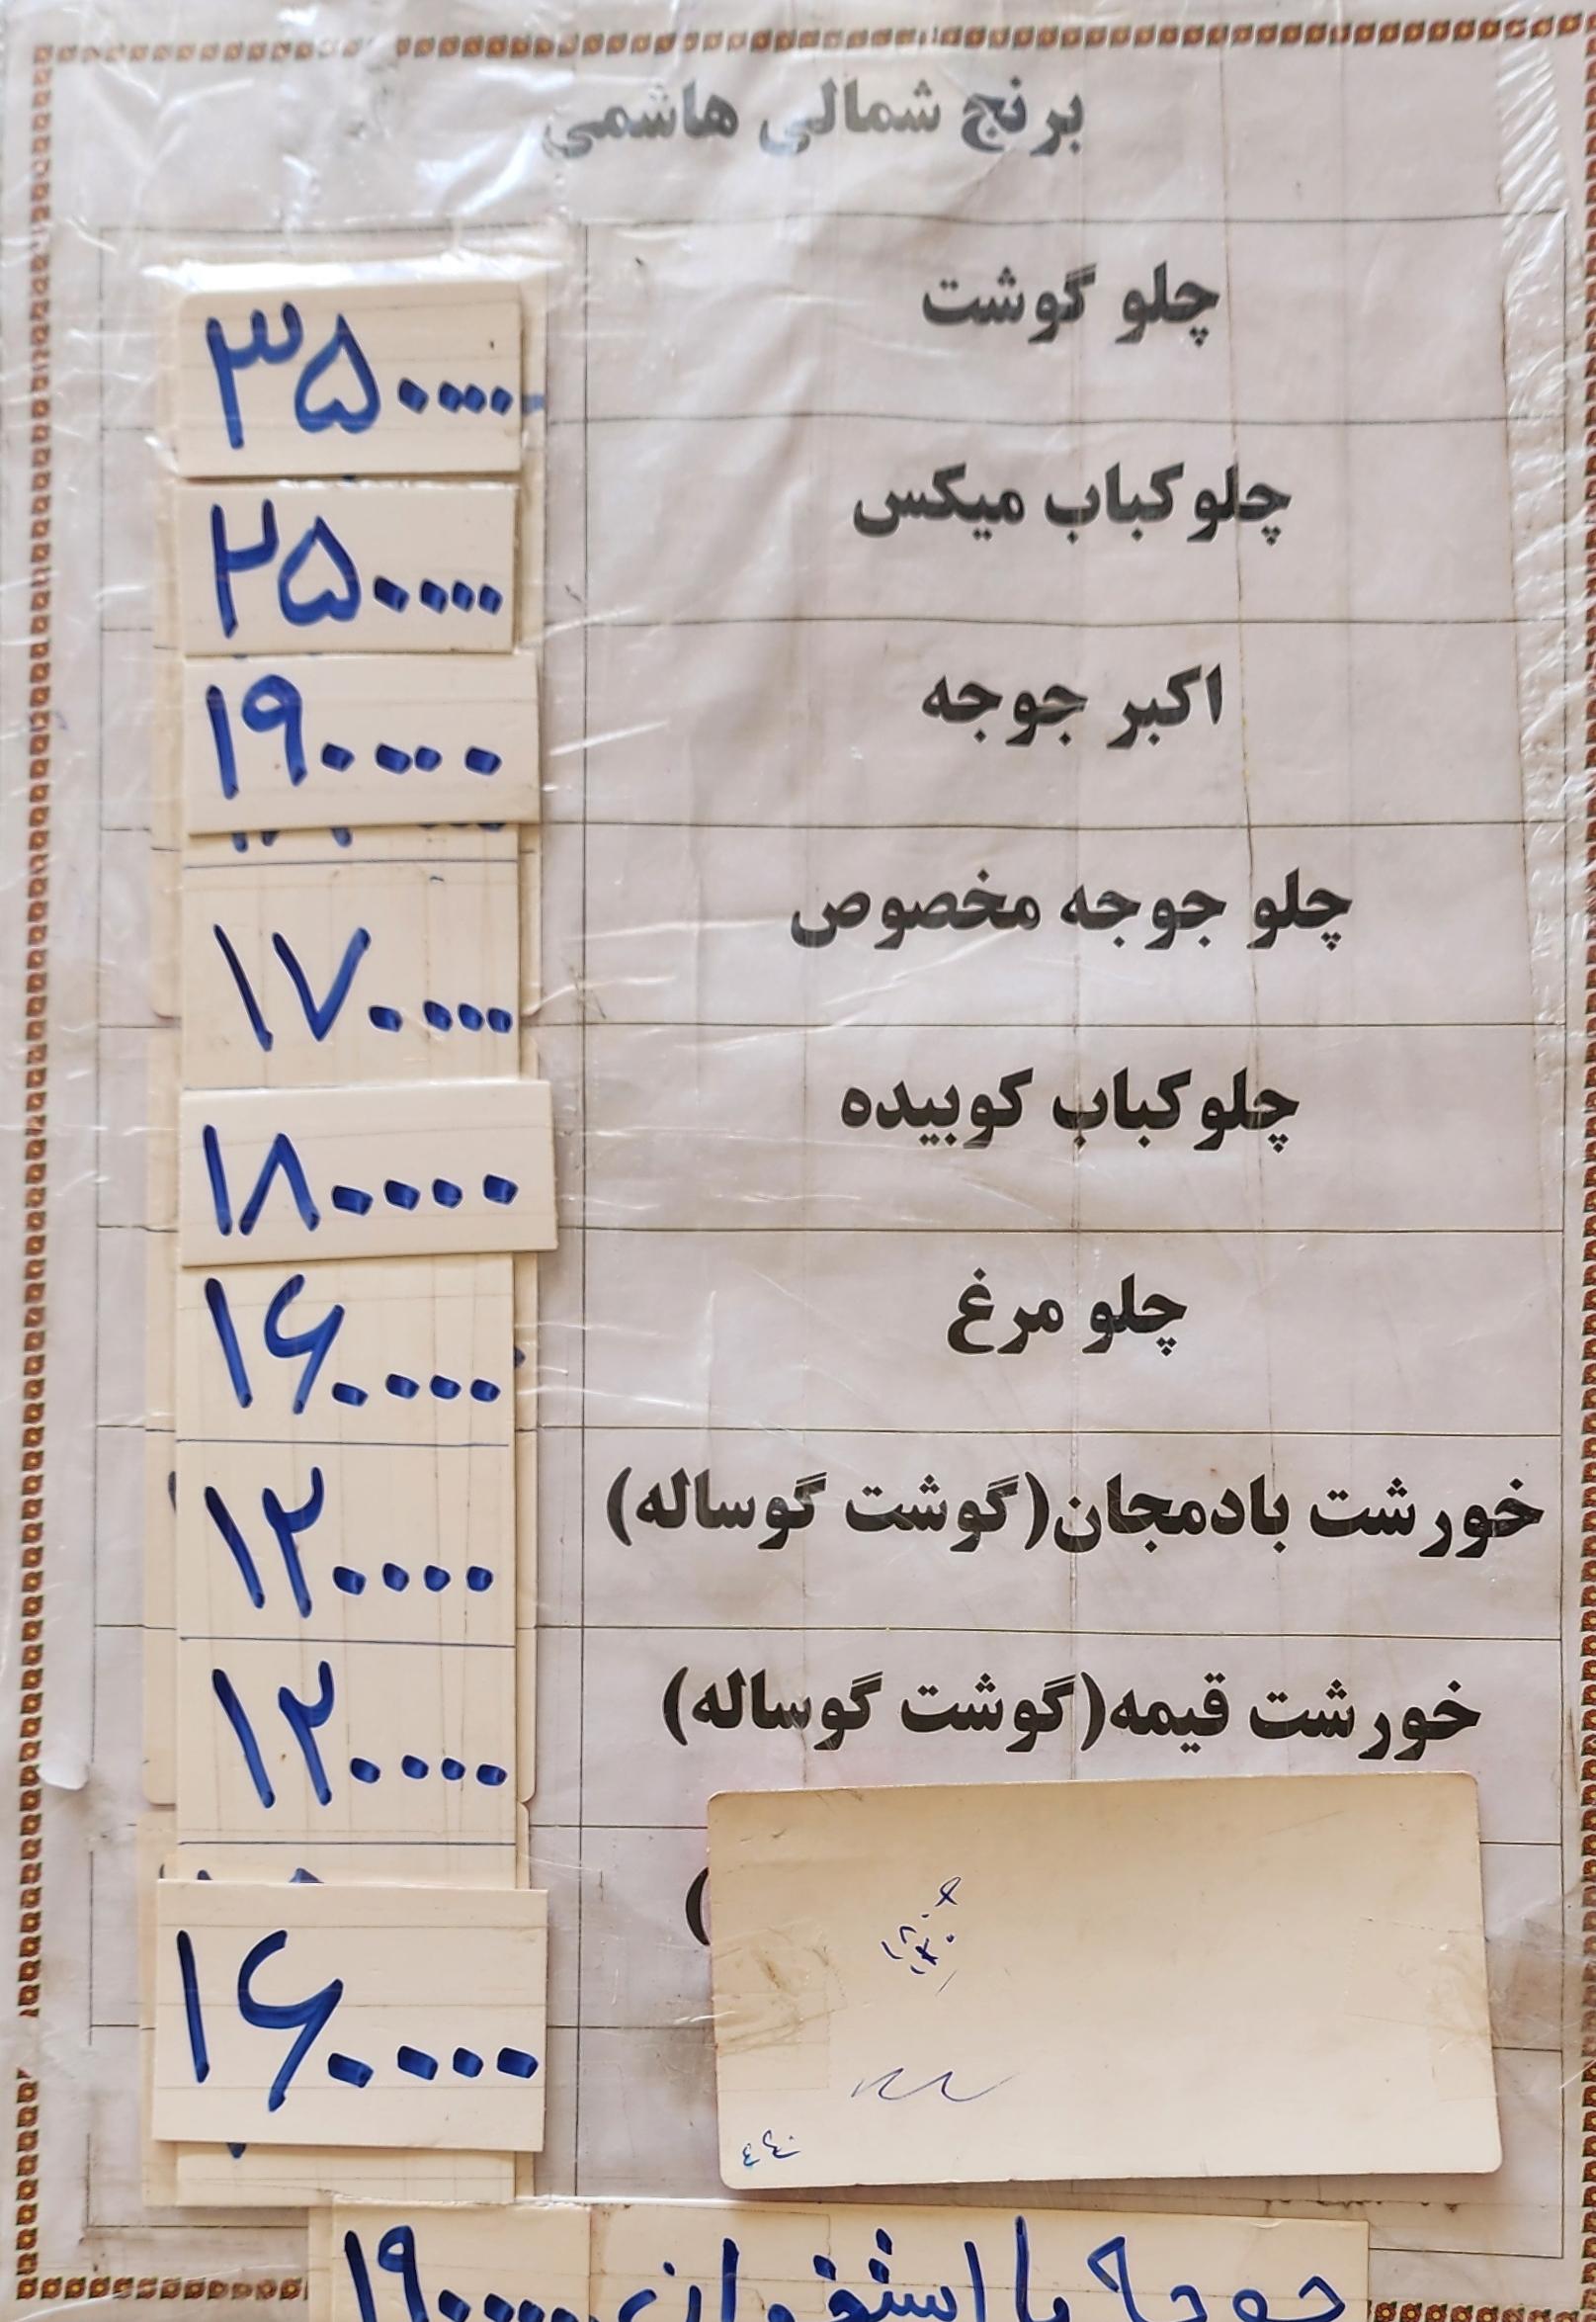 برنج شمالی هاشمی
چلو گوشت ۳۵۰۰۰۰۰
چلوکباب میکس ۲۵۰۰۰۰۰
اکبر جوجه ۱۹۰۰۰۰۰
چلو جوجه مخصوص ۱۷۰۰۰۰۰
چلوکباب کوبیده ۱۸۰۰۰۰۰
چلو مرغ ۱۶۰۰۰۰۰
خورشت بادمجان(گوشت گوساله) ۱۲۰۰۰۰۰
خورشت قیمه(گوشت گوساله) ۱۲۰۰۰۰۰
۱۶۰۰۰۰۰
جوجه با استخوان ۱۹۰۰۰۰۰